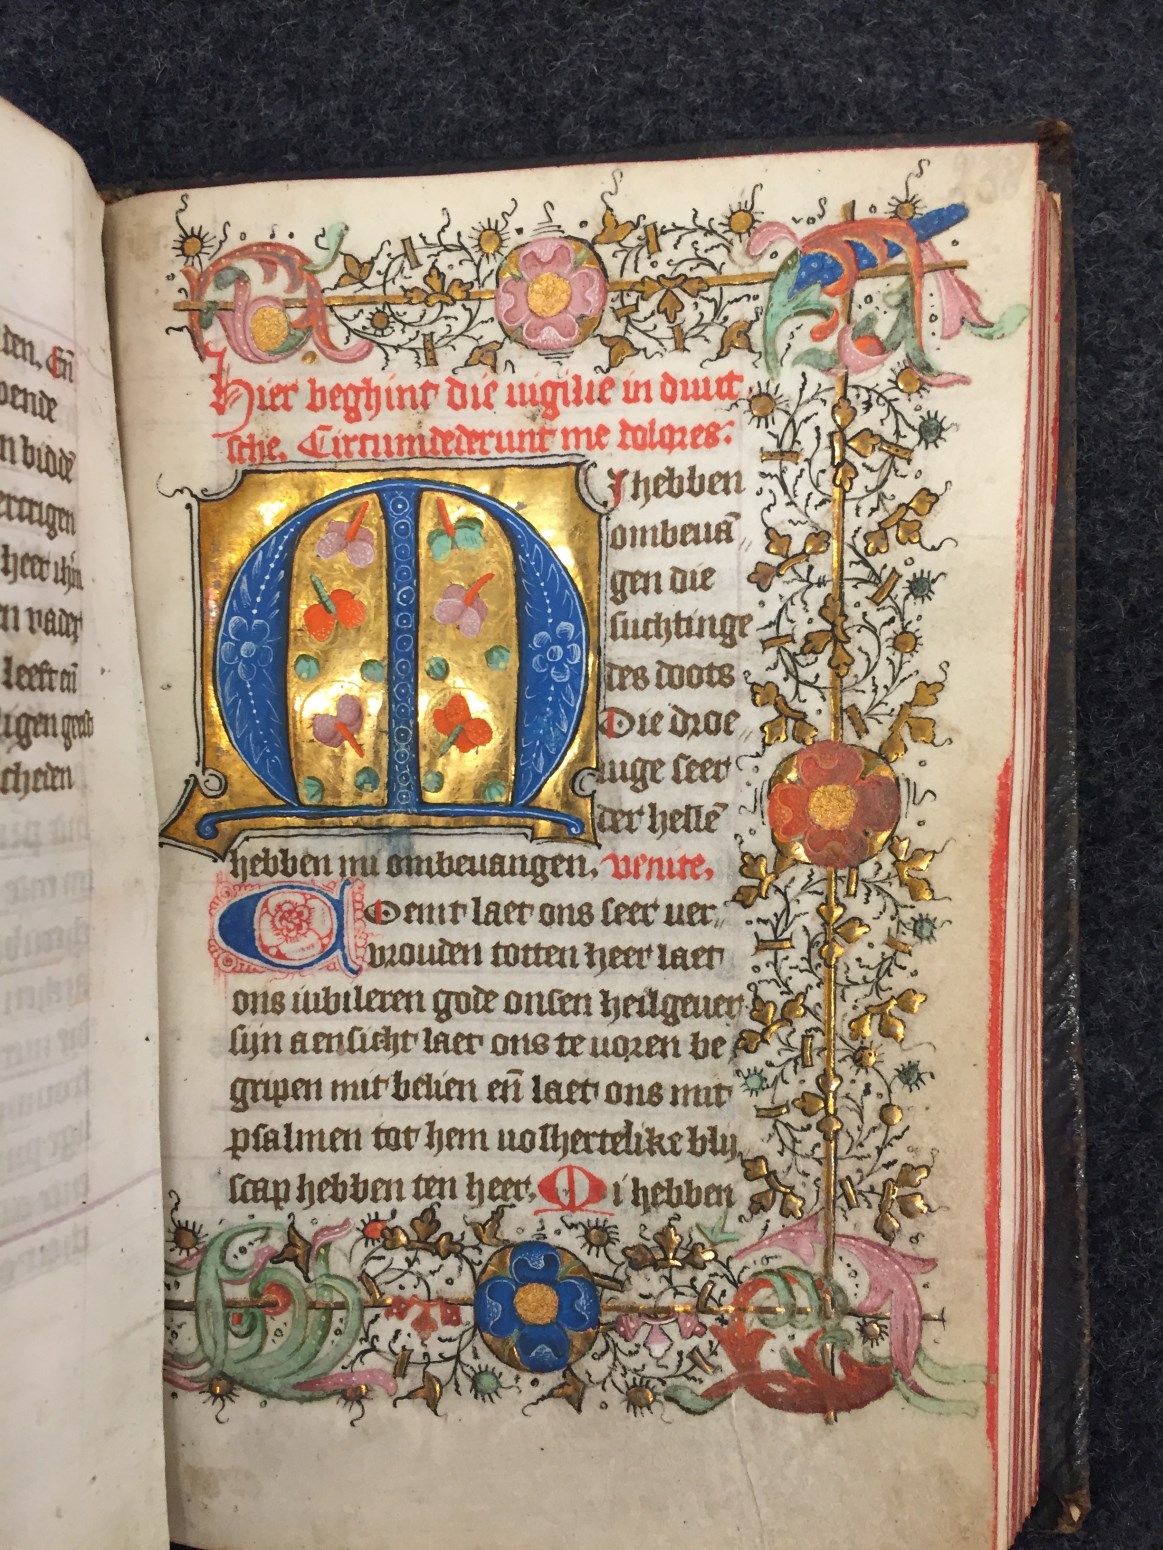 den. Eñ
bidde
heer ihm
n vader
leeft eñ
scheden
Hier beghint die uigilie in duut
sche. Circumdederunt me dolores:
MJ hebben
ombeuā
gen die
suchtinge
des doots
Die droe
uige seer
der hellē
hebben mi ombeuangen. Venite.
COemt laet ons seer uer
vrouden totten heer laet
ons iubileren gode onsen heilgeuer
sijn aensicht laet ons te uoren be
gripen mit belien eñ laet ons mit
psalmen tot hem uo shertelike blij
scap hebben ten heer. Mi hebben